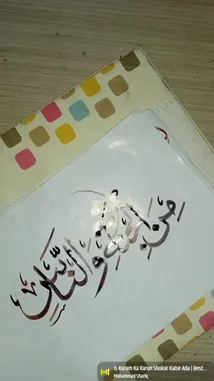 مِنَ الْجِنَّةِ وَالنَّاسِ
Is Karam Ka Karun Shukar Kaise Ada | Best...
Muhammad Shafiq